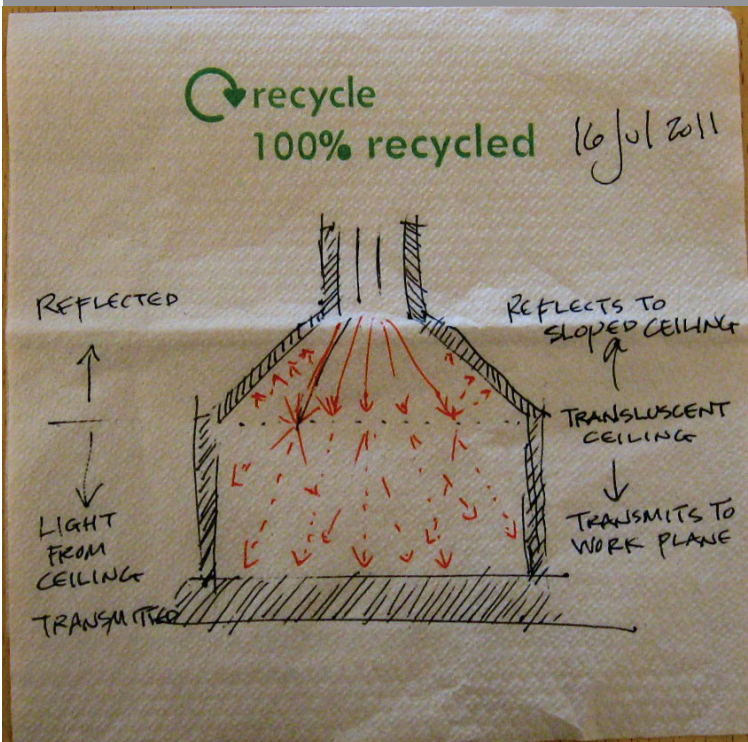 recycle
100% recycled
16 Jul 2011
REFLECTED
LIGHT
FROM
CEILING
TRANSMITTED
REFLECTS TO
SLOPED CEILING
TRANSLUSCENT
CEILING
TRANSMITS TO
WORK PLANE